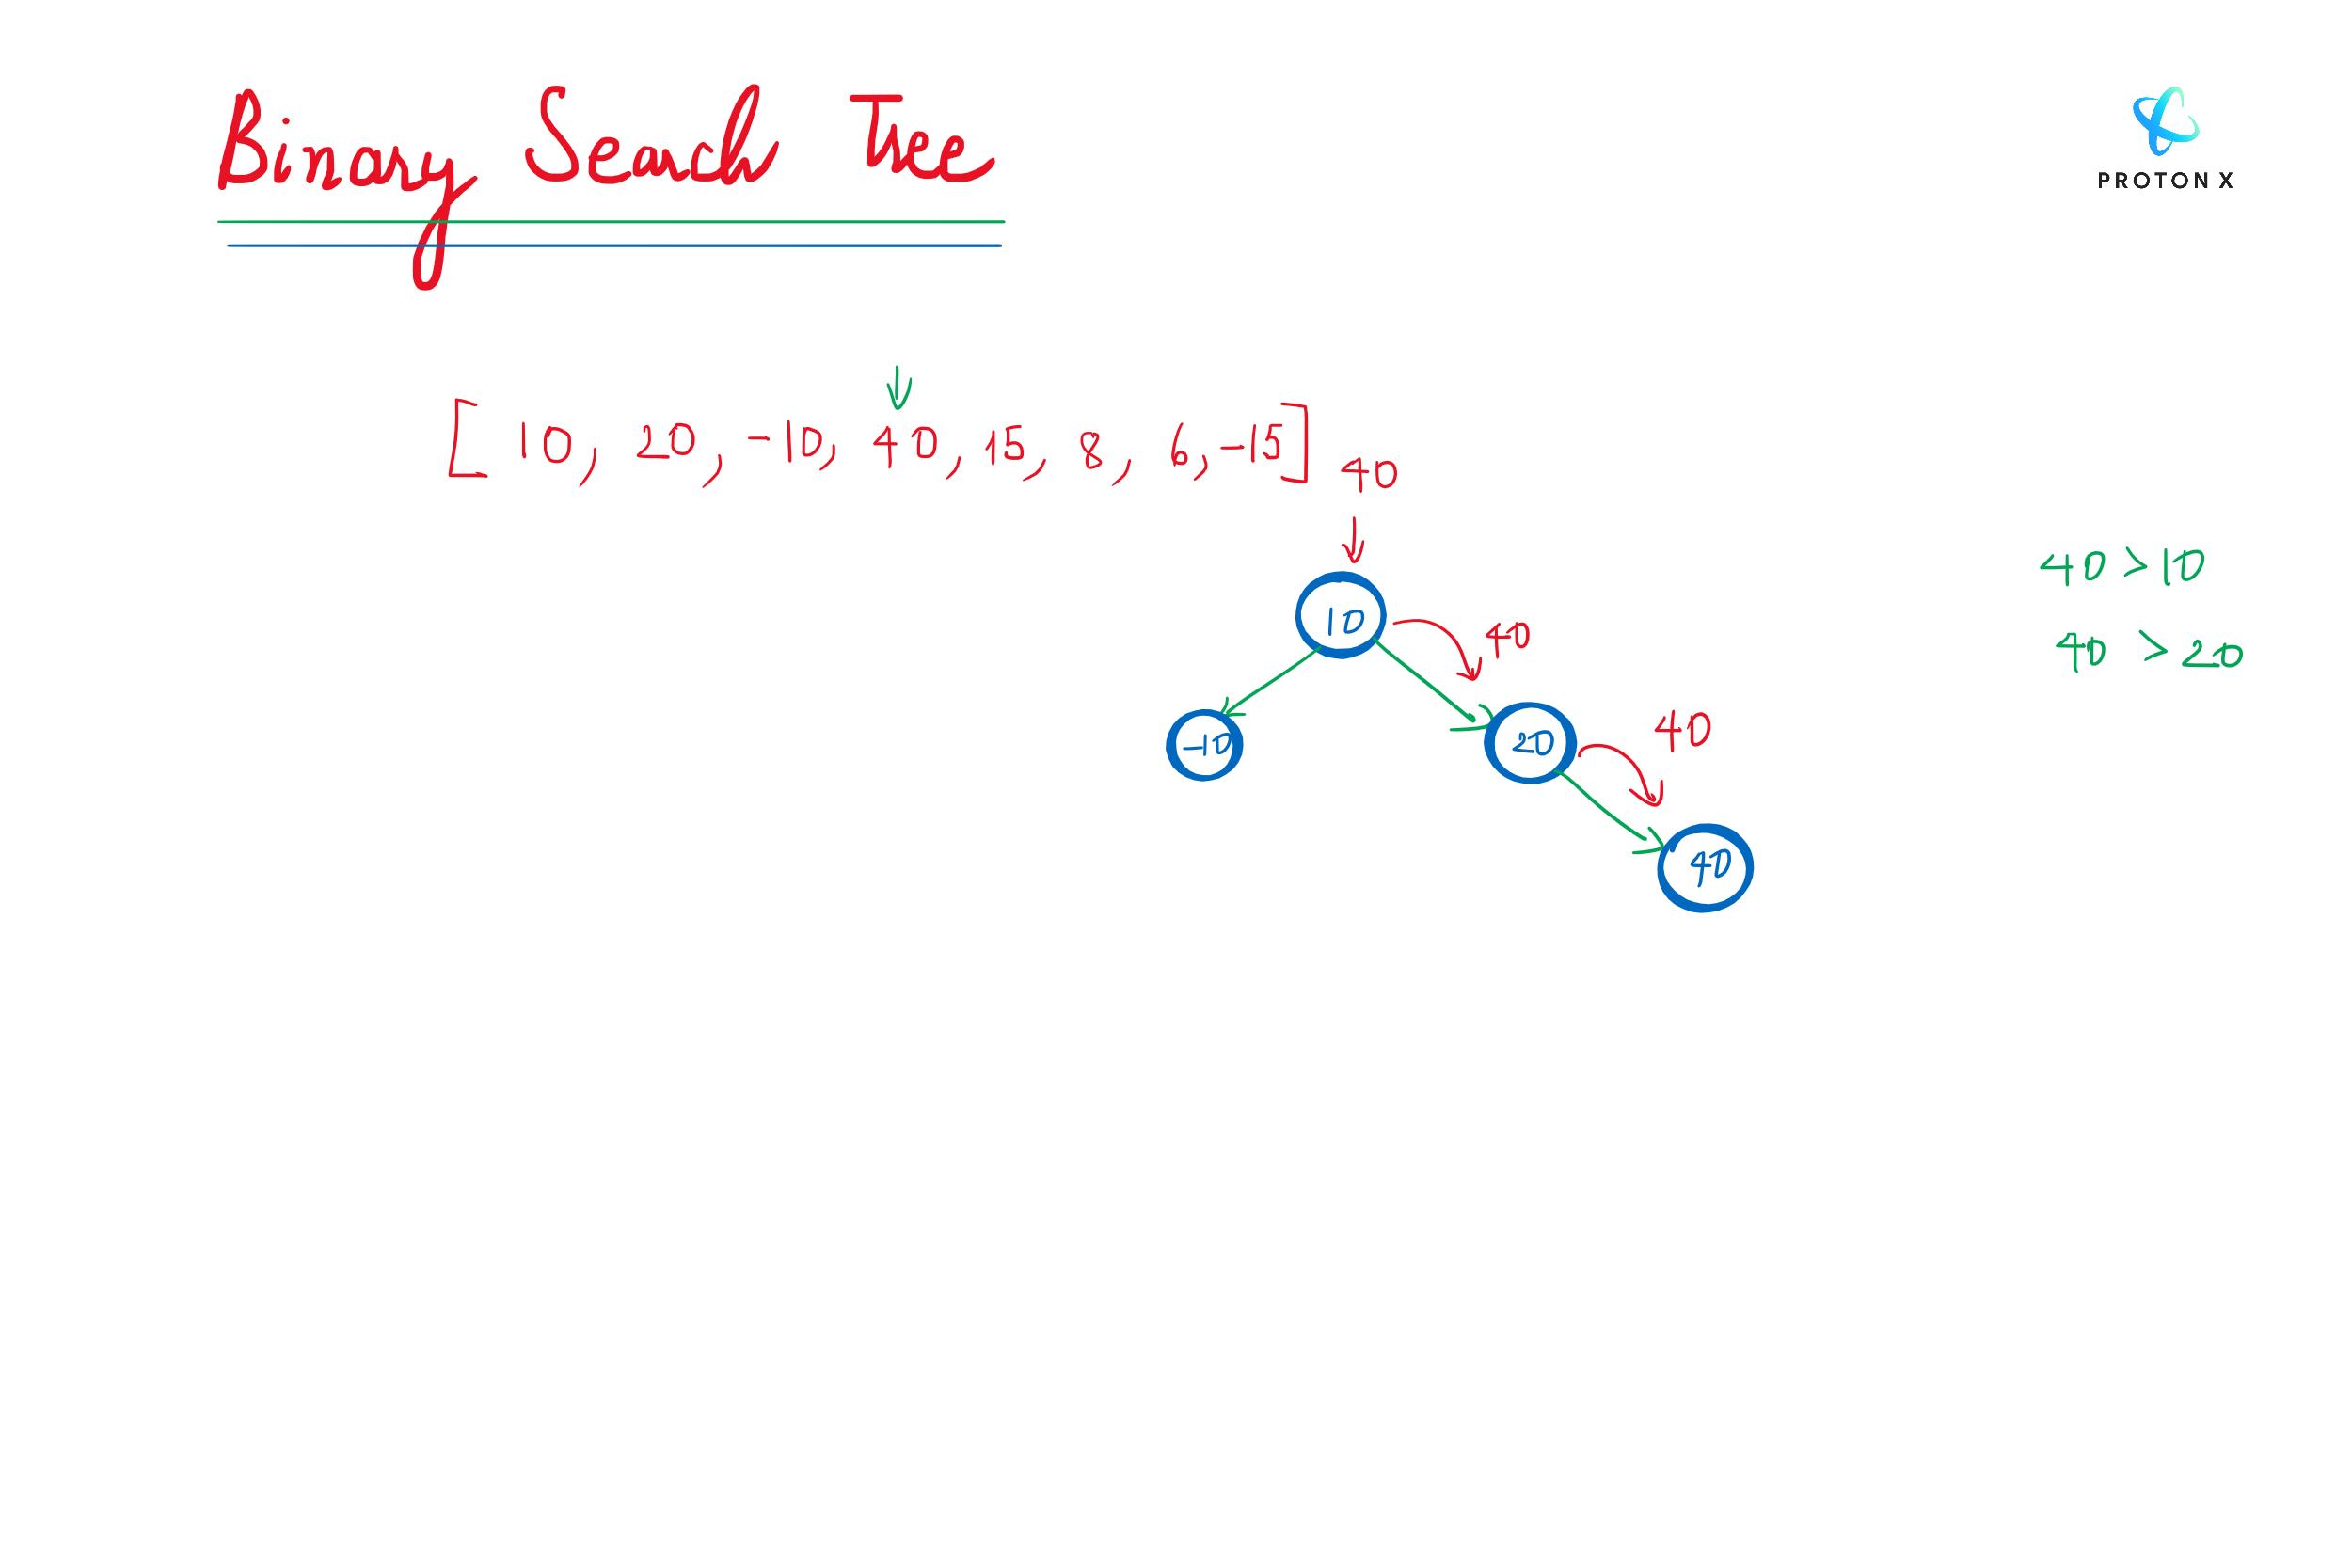 Binary Search Tree
PROTON X
[10, 20, -10, 40, 15, 8, 6, -15]
40
40 > 10
10
40
40 > 20
40
-10
20
40